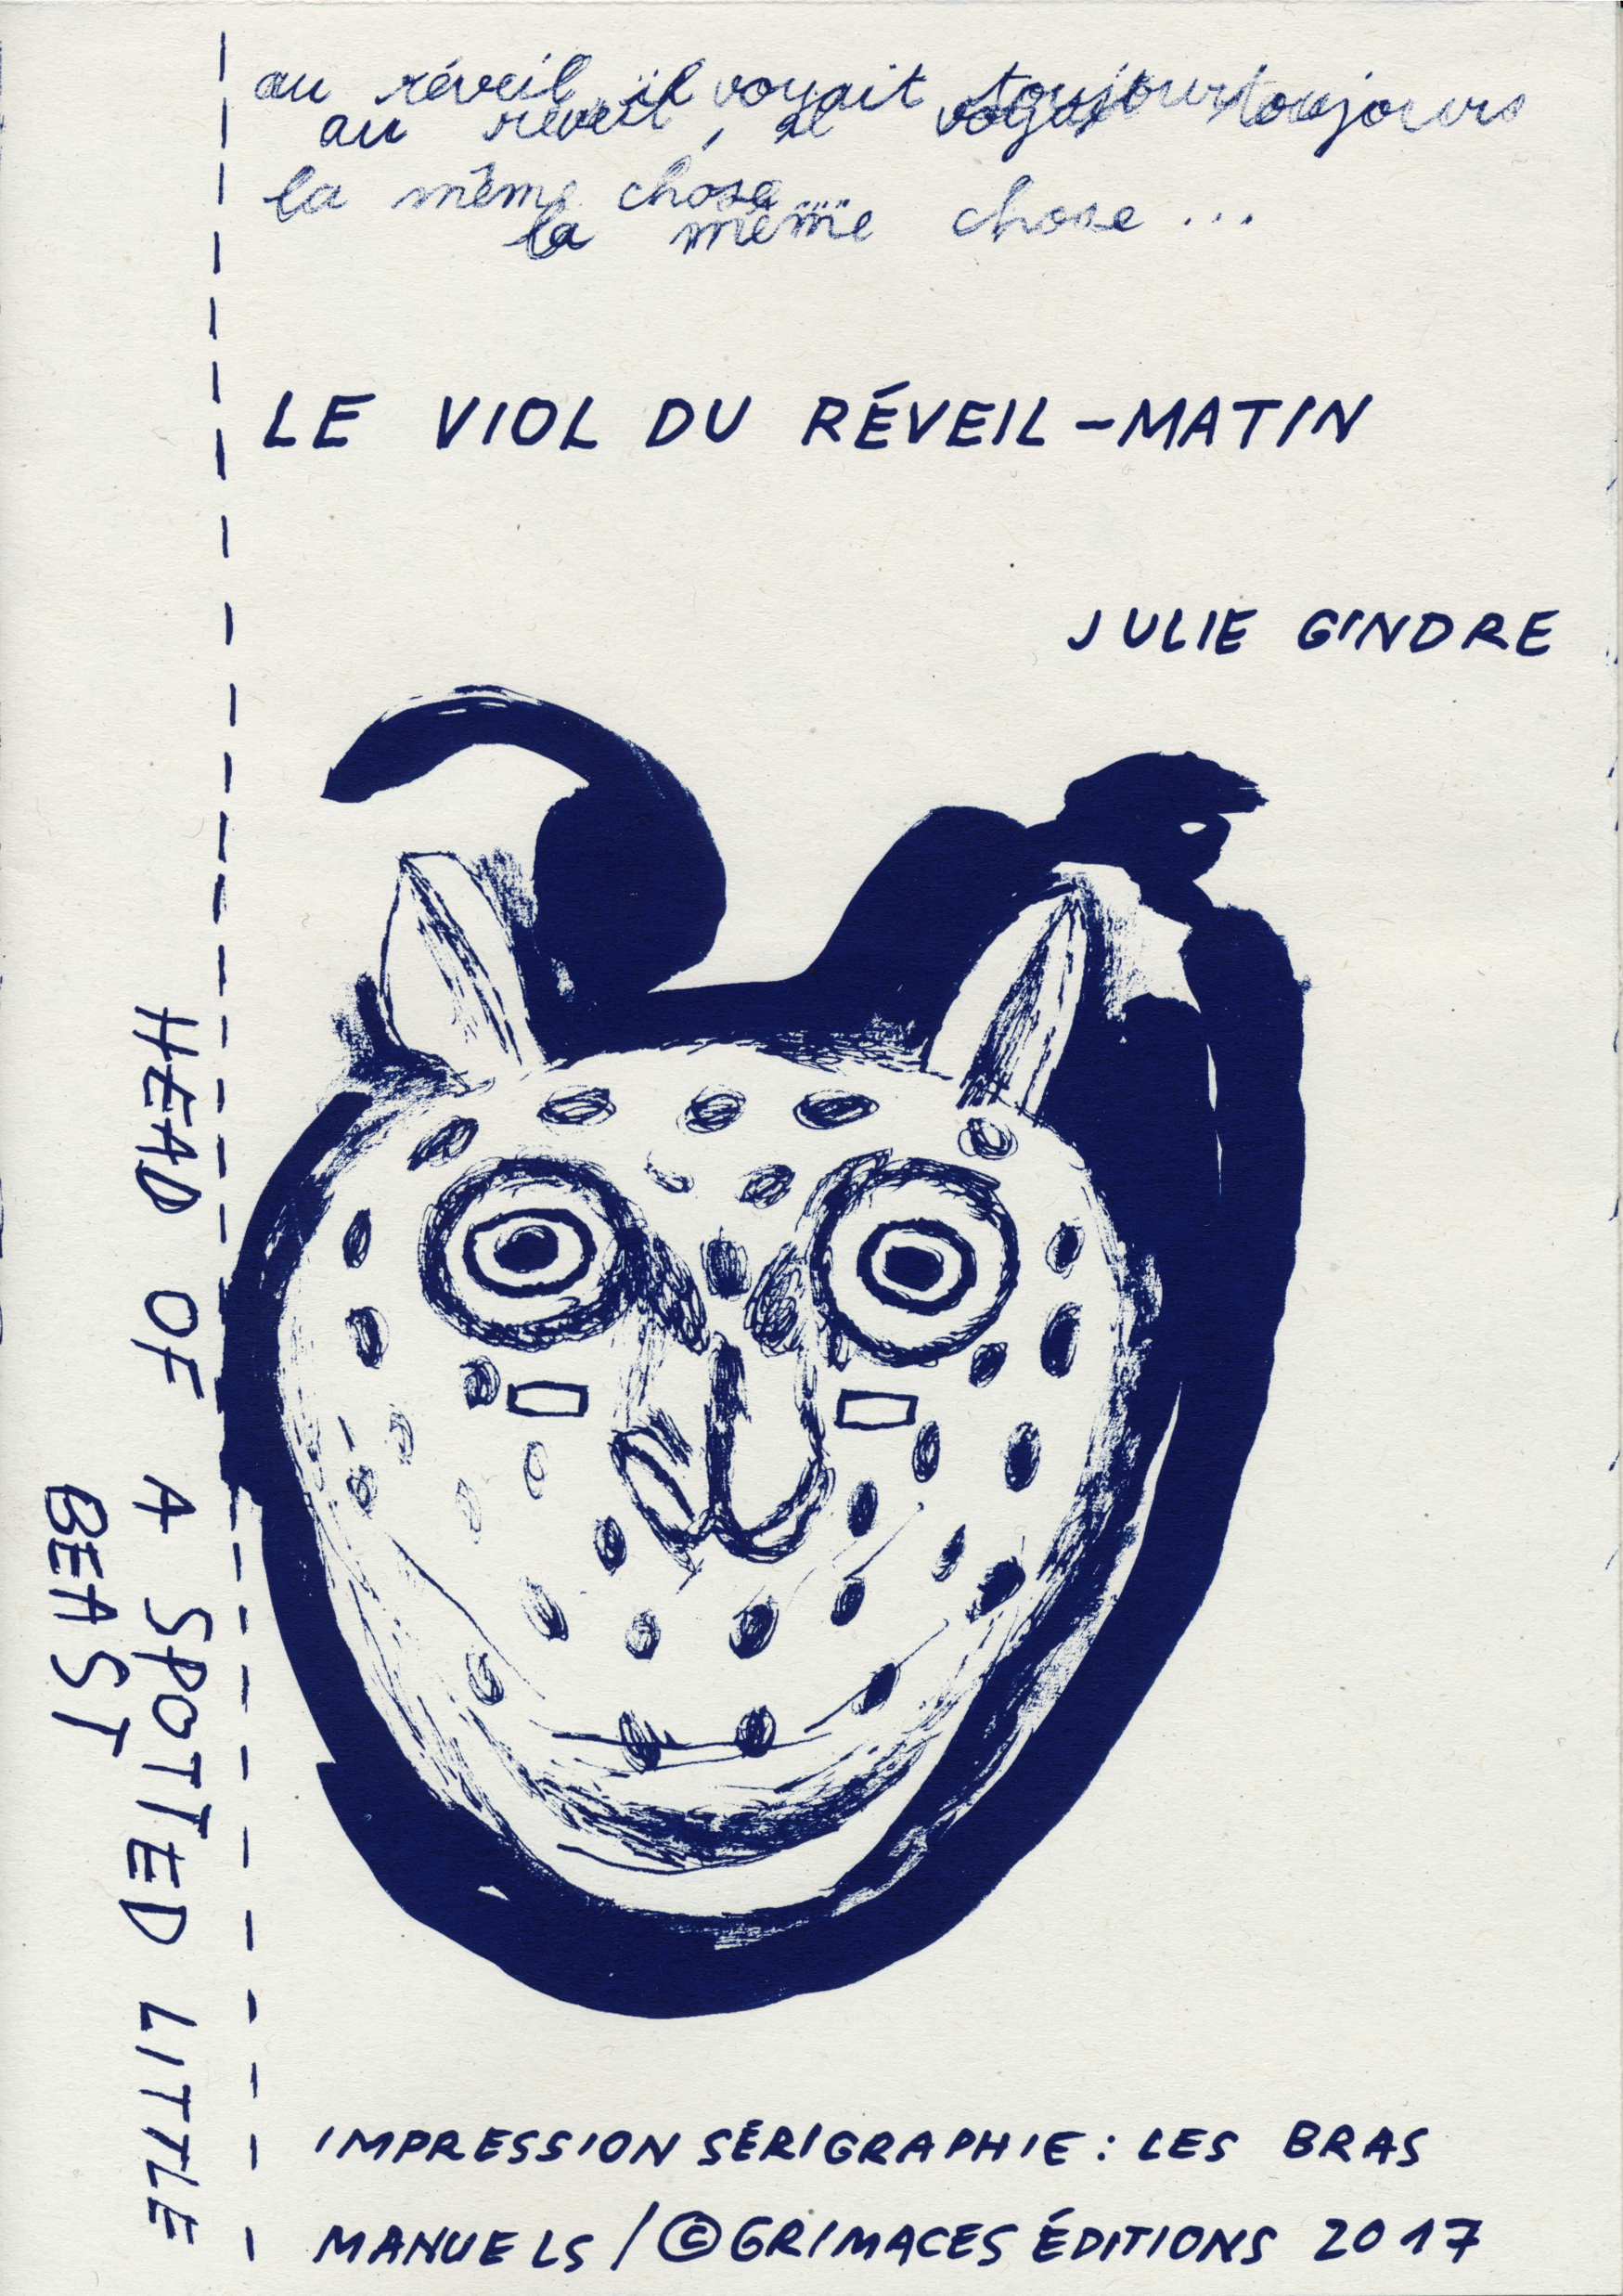 au réveil, il voyait toujours toujours
au réveil, il voyait
la même chose...
la même chose...
LE VIOL DU RÉVEIL-MATIN
JULIE GINDRE
HEAD OF A SPOTTED LITTLE
BEAST
IMPRESSION SÉRIGRAPHIE : LES BRAS
MANUELS / © GRIMACES ÉDITIONS 2017